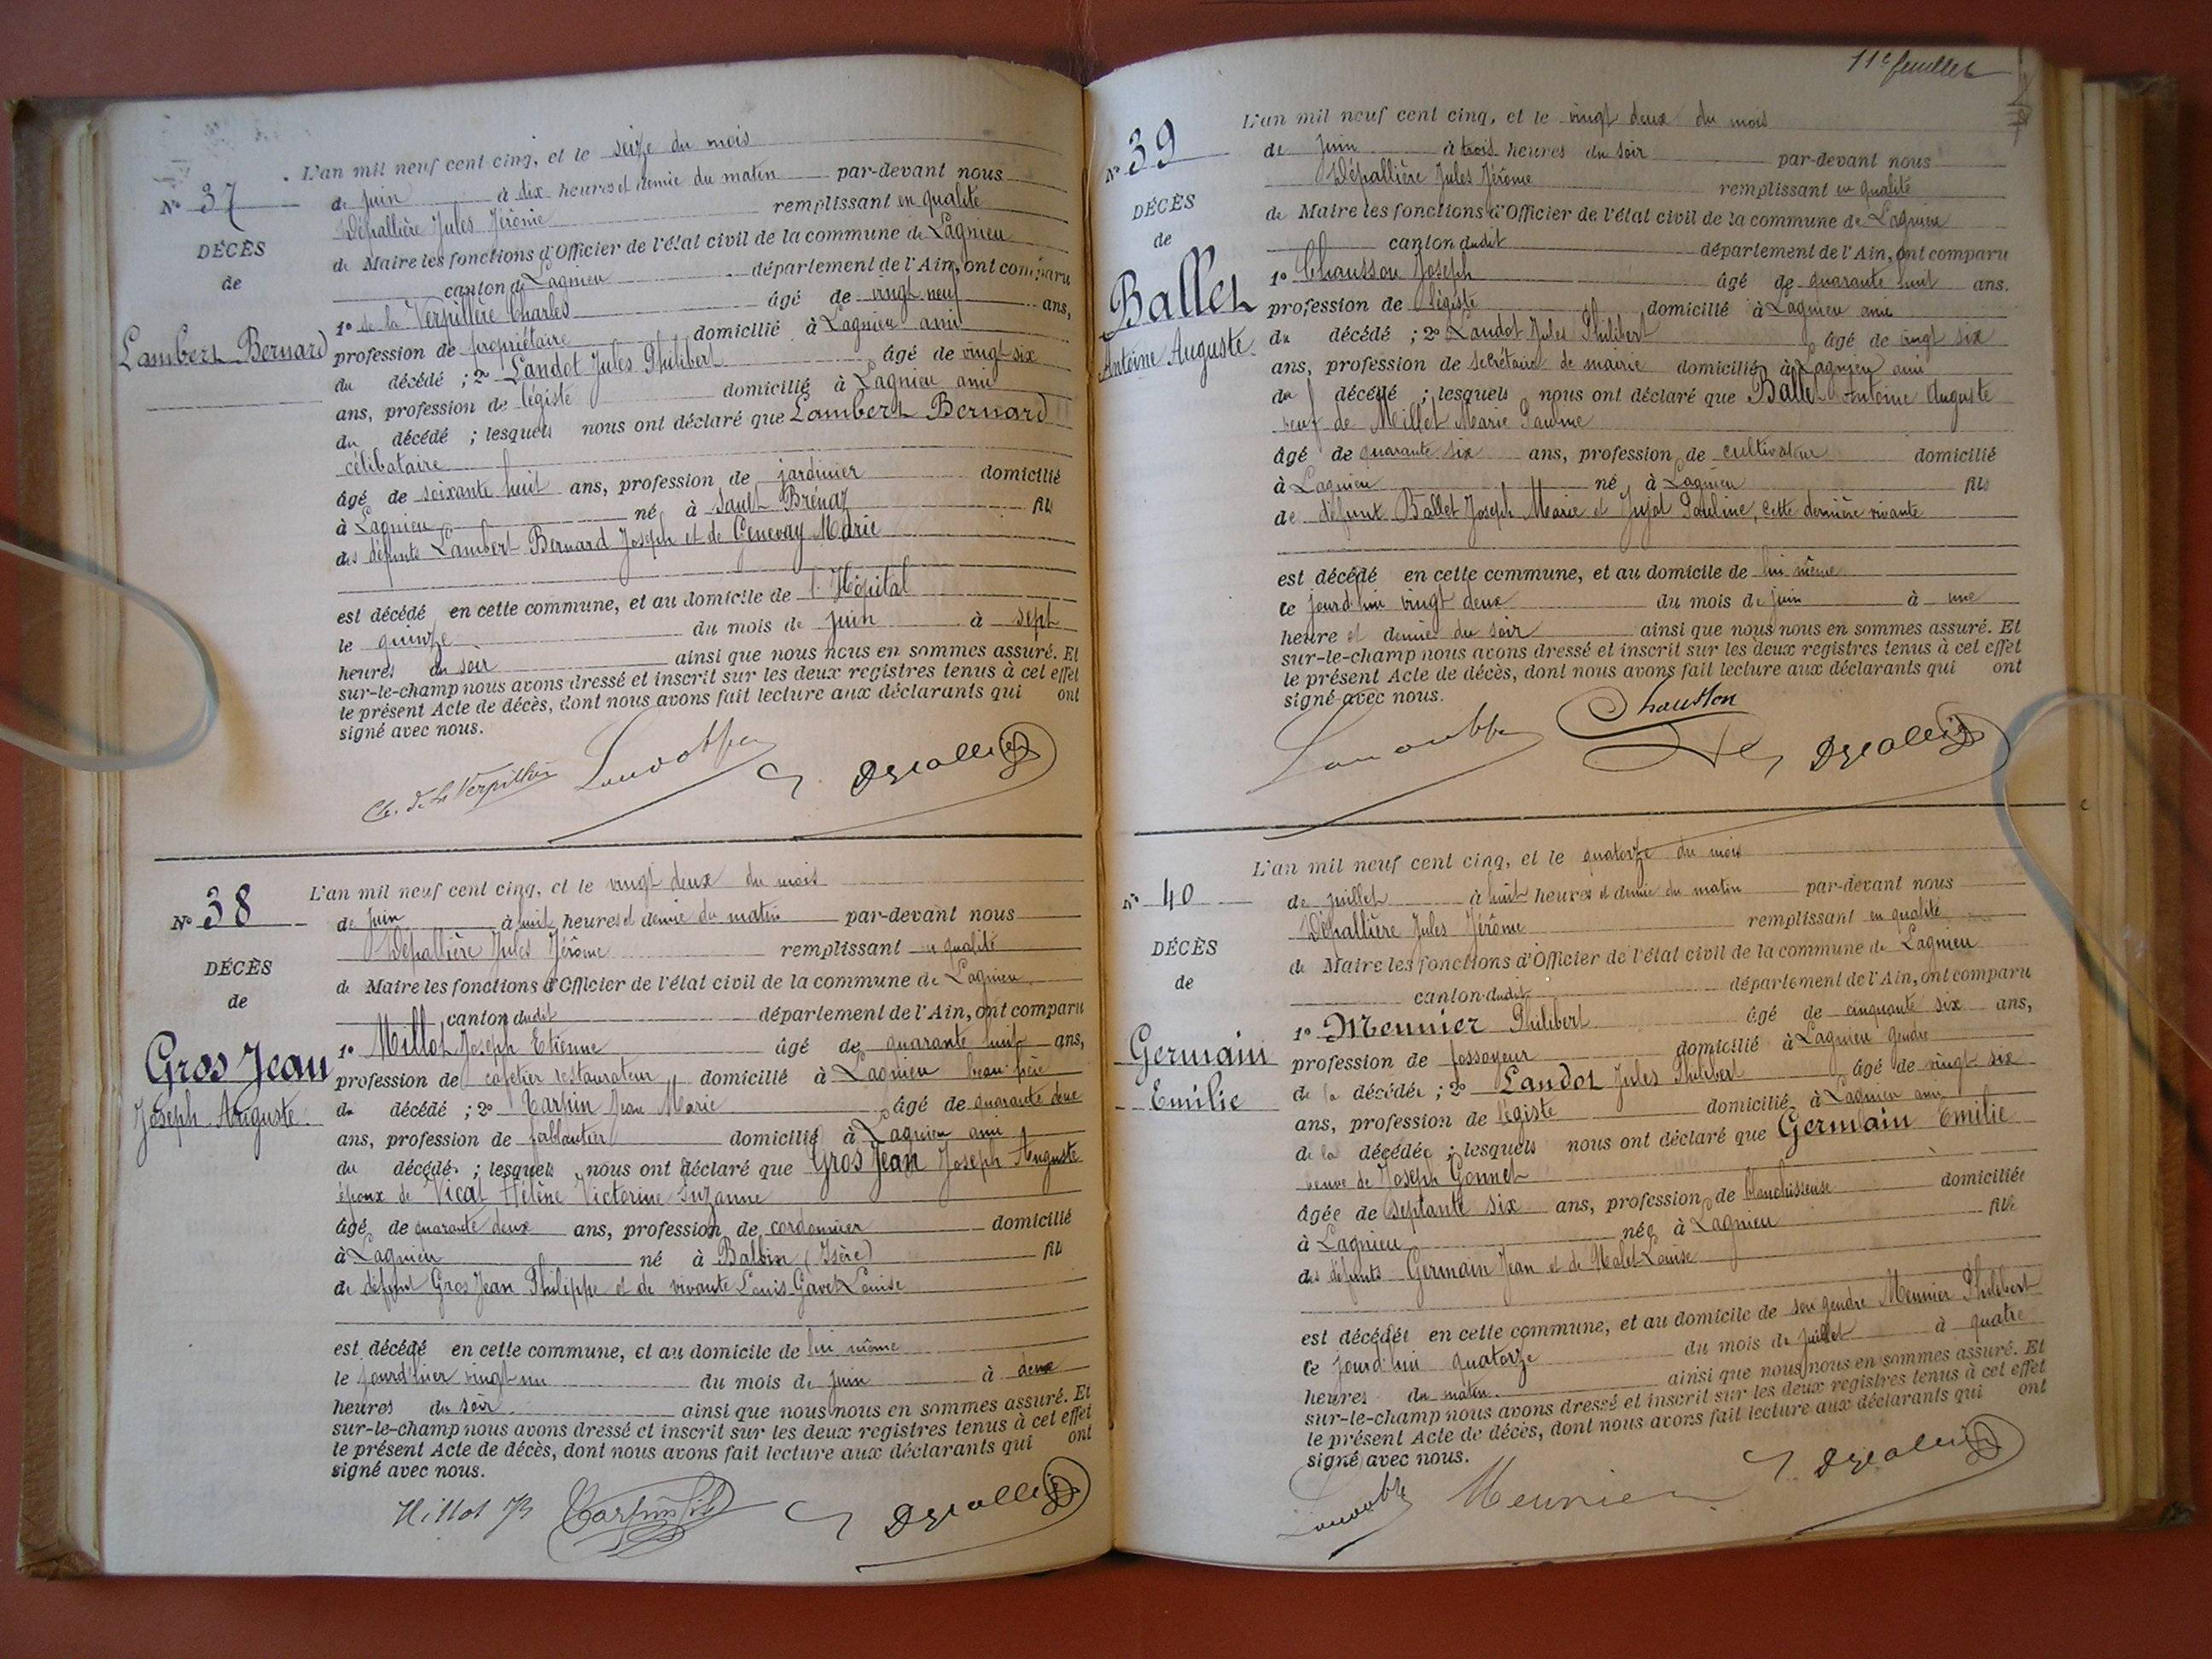 N° 37
DÉCÈS
de
Lambert Bernard
L'an mil neuf cent cinq, et le seize du mois
de juin à dix heures et demie du matin par-devant nous
Dépallière Jules Jérôme remplissant en qualité
de Maire les fonctions d'Officier de l'état civil de la commune de Lagnieu
canton de Lagnieu département de l'Ain, ont comparu
1° de la Verpillère Charles âgé de vingt neuf ans,
profession de propriétaire domicilié à Lagnieu ami
du décédé ; 2° Landot Jules Philibert âgé de vingt six
ans, profession de légiste domicilié à Lagnieu ami
du décédé ; lesquels nous ont déclaré que Lambert Bernard
célibataire
âgé de soixante huit ans, profession de jardinier domicilié
à Lagnieu né à Sault Brénaz fils
des défunts Lambert Bernard Joseph et de Genevay Marie
est décédé en cette commune, et au domicile de l'Hôpital
le quinze du mois de juin à sept
heures du soir ainsi que nous nous en sommes assuré. Et
sur-le-champ nous avons dressé et inscrit sur les deux registres tenus à cet effet
le présent Acte de décès, dont nous avons fait lecture aux déclarants qui ont
signé avec nous.
Ch. de la Verpillière
N° 38
DÉCÈS
de
Gros Jean
Joseph Auguste.
L'an mil neuf cent cinq, et le vingt deux du mois
de juin à huit heures et demie du matin par-devant nous
Dépallière Jules Jérôme remplissant en qualité
de Maire les fonctions d'Officier de l'état civil de la commune de Lagnieu
canton dudit département de l'Ain, ont comparu
1° Millot Joseph Etienne âgé de quarante huit ans,
profession de cafetier restaurateur domicilié à Lagnieu beau frère
du décédé ; 2° Tarpin Jean Marie âgé de quarante deux
ans, profession de ferblantier domicilié à Lagnieu ami
du décédé ; lesquels nous ont déclaré que Gros Jean Joseph Auguste
époux de Vical Hélène Victorine Suzanne
âgé de quarante deux ans, profession de cordonnier domicilié
à Lagnieu né à Balbin (Isère) fils
de défunt Gros Jean Philippe et de vivante Louis Gavet Louise
est décédé en cette commune, et au domicile de lui même
le jourd'hier vingt un du mois de juin à deux
heures du soir ainsi que nous nous en sommes assuré. Et
sur-le-champ nous avons dressé et inscrit sur les deux registres tenus à cet effet
le présent Acte de décès, dont nous avons fait lecture aux déclarants qui ont
signé avec nous.
Millot Tarpin fils
11e feuillet
N° 39
DÉCÈS
de
Ballet
Antoine Auguste.
L'an mil neuf cent cinq, et le vingt deux du mois
de Juin à trois heures du soir par-devant nous
Dépallière Jules Jérôme remplissant en qualité
de Maire les fonctions d'Officier de l'état civil de la commune de Lagnieu
canton dudit département de l'Ain, ont comparu
1° Chausson Joseph âgé de quarante huit ans.
profession de légiste domicilié à Lagnieu ami
du décédé ; 2° Landot Jules Philibert âgé de vingt six
ans, profession de secrétaire de mairie domicilié à Lagnieu ami
du décédé ; lesquels nous ont déclaré que Ballet Antoine Auguste
veuf de Millet Marie Pauline
âgé de quarante six ans, profession de cultivateur domicilié
à Lagnieu né à Lagnieu fils
de défunt Ballet Joseph Marie et Jujat Pauline, cette dernière vivante
est décédé en cette commune, et au domicile de lui même
ce jourd'hui vingt deux du mois de juin à une
heure et demie du soir ainsi que nous nous en sommes assuré. Et
sur-le-champ nous avons dressé et inscrit sur les deux registres tenus à cet effet
le présent Acte de décès, dont nous avons fait lecture aux déclarants qui ont
signé avec nous.
Chausson
N° 40
DÉCÈS
de
Germain
Emilie
L'an mil neuf cent cinq, et le quatorze du mois
de juillet à huit heures et demie du matin par-devant nous
Dépallière Jules Jérôme remplissant en qualité
de Maire les fonctions d'Officier de l'état civil de la commune de Lagnieu
canton dudit département de l'Ain, ont comparu
1° Meunier Philibert âgé de cinquante six ans,
profession de fossoyeur domicilié à Lagnieu gendre
de la décédée ; 2° Landot Jules Philibert âgé de vingt six
ans, profession de légiste domicilié à Lagnieu ami
de la décédée ; lesquels nous ont déclaré que Germain Emilie
veuve de Joseph Gonnet
âgée de septante six ans, profession de blanchisseuse domiciliée
à Lagnieu née à Lagnieu fille
des défunts Germain Jean et de Louise
est décédée en cette commune, et au domicile de son gendre Meunier Philibert
ce jourd'hui quatorze du mois de juillet à quatre
heures du matin ainsi que nous nous en sommes assuré. Et
sur-le-champ nous avons dressé et inscrit sur les deux registres tenus à cet effet
le présent Acte de décès, dont nous avons fait lecture aux déclarants qui ont
signé avec nous.
Meunier